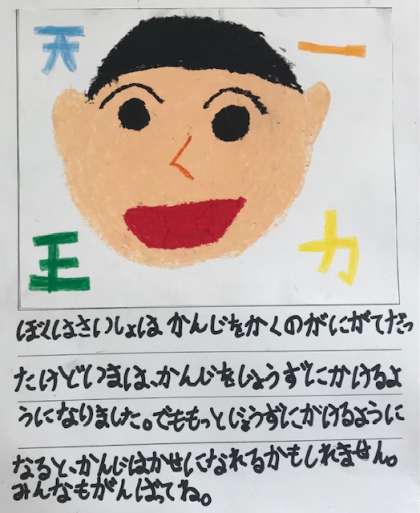 天 一
王 力
ぼくはさいしょは、かんじをかくのがにがてだっ
たけどいまは、かんじをじょうずにかけるよ
うになりました。でももっとじょうずにかけるように
なると、かんじはかせになれるかもしれません。
みんなもがんばってね。